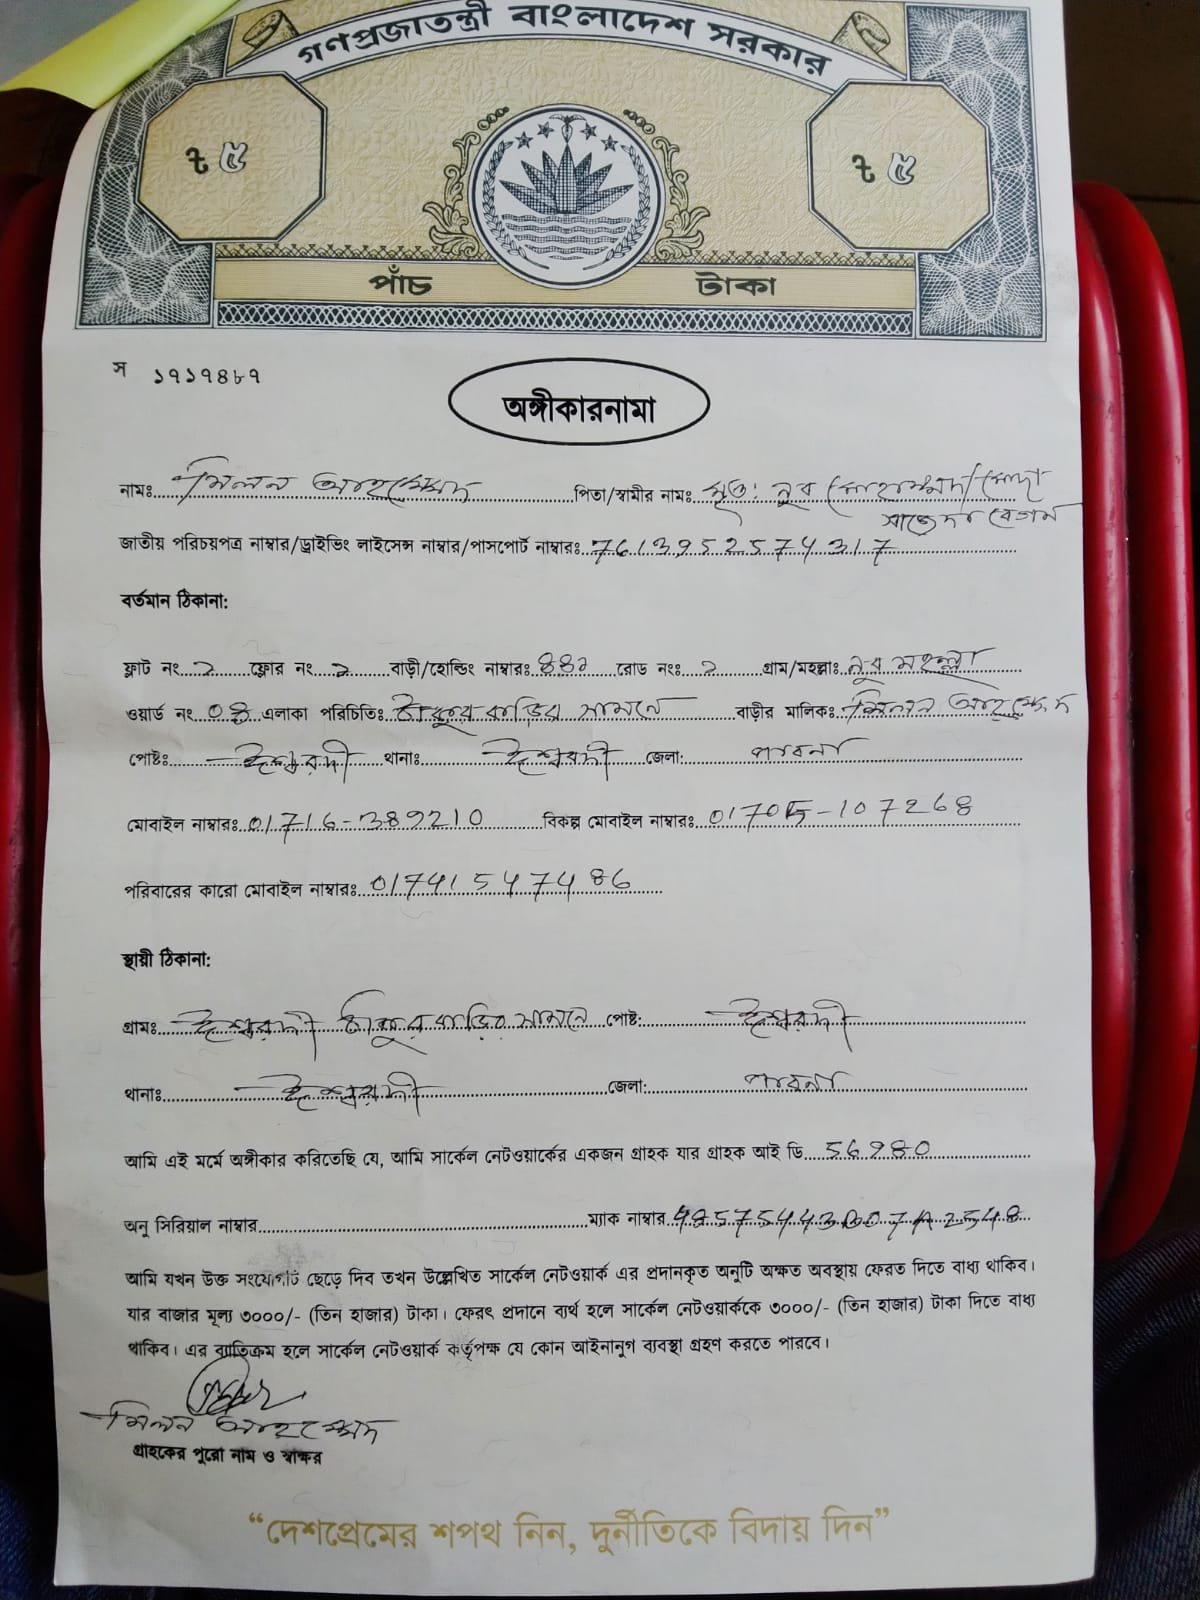 গণপ্রজাতন্ত্রী বাংলাদেশ সরকার
৳ ৫ ৳ ৫
পাঁচ টাকা
স ১৭১৭৪৮৭
অঙ্গীকারনামা
নামঃ মিলন আহম্মেদ পিতা/স্বামীর নামঃ মৃত: নুর মোহাম্মদ/মোছা
সাজেদা বেগম
জাতীয় পরিচয়পত্র নাম্বার/ড্রাইভিং লাইসেন্স নাম্বার/পাসপোর্ট নাম্বারঃ 7613952574317
বর্তমান ঠিকানা:
ফ্লাট নং ২ ফ্লোর নং ২ বাড়ী/হোল্ডিং নাম্বারঃ ৪৪১ রোড নংঃ ২ গ্রাম/মহল্লাঃ নুর মহল্লা
ওয়ার্ড নং 0৪ এলাকা পরিচিতিঃ ঠাকুর বাড়ির সামনে বাড়ীর মালিকঃ মিলন আহম্মেদ
পোষ্টঃ ঈশ্বরদী থানাঃ ঈশ্বরদী জেলা: পাবনা
মোবাইল নাম্বারঃ 01716-389210 বিকল্প মোবাইল নাম্বারঃ 01705-107268
পরিবারের কারো মোবাইল নাম্বারঃ 01741547486
স্থায়ী ঠিকানা:
গ্রামঃ ঈশ্বরদী ঠাকুর বাড়ির সামনে পোষ্ট: ঈশ্বরদী
থানাঃ ঈশ্বরদী জেলা: পাবনা
আমি এই মর্মে অঙ্গীকার করিতেছি যে, আমি সার্কেল নেটওয়ার্কের একজন গ্রাহক যার গ্রাহক আই ডি 56980
অনু সিরিয়াল নাম্বার ম্যাক নাম্বার
আমি যখন উক্ত সংযোগটি ছেড়ে দিব তখন উল্লেখিত সার্কেল নেটওয়ার্ক এর প্রদানকৃত অনুটি অক্ষত অবস্থায় ফেরত দিতে বাধ্য থাকিব।
যার বাজার মূল্য ৩০০০/- (তিন হাজার) টাকা। ফেরৎ প্রদানে ব্যর্থ হলে সার্কেল নেটওয়ার্ককে ৩০০০/- (তিন হাজার) টাকা দিতে বাধ্য
থাকিব। এর ব্যতিক্রম হলে সার্কেল নেটওয়ার্ক কর্তৃপক্ষ যে কোন আইনানুগ ব্যবস্থা গ্রহণ করতে পারবে।
মিলন আহম্মেদ
গ্রাহকের পুরো নাম ও স্বাক্ষর
“দেশপ্রেমের শপথ নিন, দুর্নীতিকে বিদায় দিন”